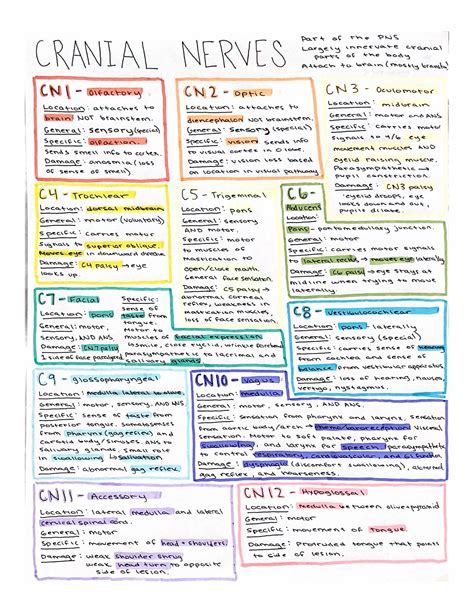 CRANIAL NERVES
Part of the PNS
Largely innervate cranial
parts of the body
Attach to brain (mostly brainstem)
CN1 - Olfactory
Location: attaches to
brain NOT brainstem.
General: sensory (special)
Specific: olfaction.
sends smell info to cortex.
Damage: anosmia (loss
of sense of smell)
CN2 - Optic
Location: attaches to
diencephalon NOT brainstem.
General: sensory (special)
Specific: vision sends info
to visual cortex in O lobe.
Damage: vision loss based
on location in visual pathway
CN3 - Oculomotor
Location: midbrain
General: motor and ANS
Specific: carries motor
signals to 4/6 eye
movement muscles AND
eyelid raising muscle.
Parasympathetic →
pupil constriction.
Damage: CN3 palsy
eyelid droops, eye
looks down and out,
pupils dilate.
C4 - Trochlear
Location: dorsal midbrain
General: motor (voluntary)
Specific: carries motor
signals to superior oblique.
Moves eye in downward direction
Damage: C4 palsy → eye
looks up.
C5 - Trigeminal
Location: pons
General: sensory
AND motor.
Specific: motor
to muscles of
mastication to
open/close mouth.
General face sensation.
Damage: C5 palsy →
abnormal corneal
reflex, weakness in
mastication muscles,
loss of face sensation.
C6 -
Abducens
Location:
Pons - pontomedullary junction.
General: motor
Specific: carries motor signals
to lateral rectus → moves eye laterally
Damage: C6 palsy → eye stays at
midline when trying to move
laterally.
C7 - Facial
Location: pons
General: motor,
sensory, AND ANS
Damage: CN7 palsy
1 side of face paralyzed
Specific:
sense of
taste from
tongue.
Motor to
muscles of facial expression
(smile, eyelid closure)
parasympathetic to lacrimal and
salivary glands
C8 - Vestibulocochlear
Location: pons laterally
General: sensory (special)
Specific: carries sense of hearing
from cochlea and sense of
balance from vestibular apparatus.
Damage: loss of hearing, nausea,
vertigo, nystagmus.
C9 - glossopharyngeal
Location: medulla, lateral to olive
General: motor, sensory, AND ANS
Specific: sense of taste from
posterior tongue. Somatosenses
from pharynx (gag reflex) and
carotid body/sinuses. ANS to
salivary glands. Small role
in swallowing (salivation)
Damage: abnormal gag reflex.
CN10 - Vagus
Location: medulla
General: motor, sensory, AND ANS.
Specific: Sensation from pharynx and larynx. Sensation
from aortic body/arch → chemo/baroreception Visceral
sensation. Motor to soft palate, pharynx for
swallowing, and larynx for speech. Parasympathetic
to control respiratory, cardiovascular, and GI function
Damage: dysphagia (discomfort swallowing), abnormal
gag reflex, and hoarseness.
CN11 - Accessory
Location: lateral medulla and lateral
cervical spinal cord.
General: motor
Specific: movement of head + shoulders.
Damage: weak shoulder shrug
weak head turn to opposite
side of lesion.
CN12 - Hypoglossal
Location: Medulla between olive + pyramid
General: motor
Specific: movement of tongue.
Damage: Protruded tongue that points
to side of lesion.